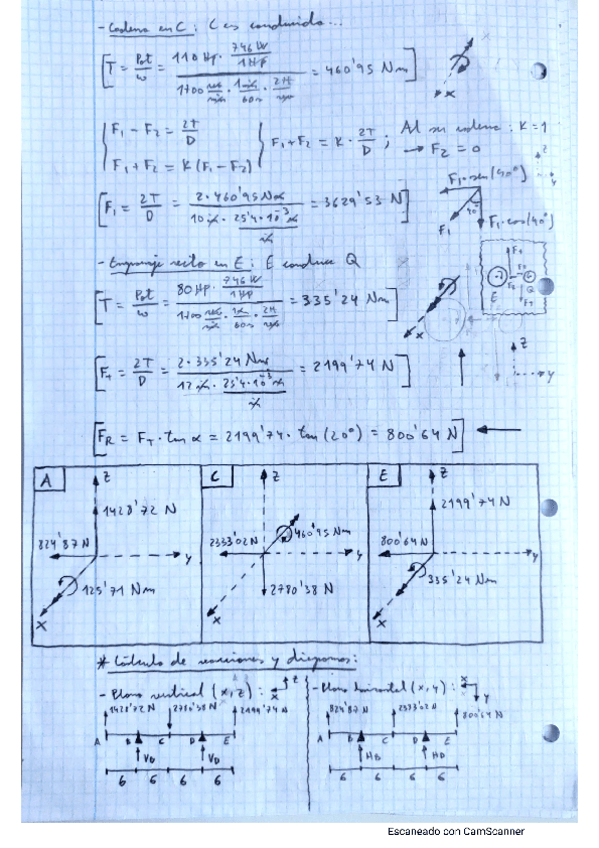 - Cadena en C: C es conducido...
[T = Pot/ω = 110 Hp · 746 W/1 Hp / 1700 rev/min · 1 min/60 s · 2π/rev = 460'95 Nm]
x
{F₁ - F₂ = 2T/D
F₁ + F₂ = K (F₁ - F₂)
} F₁ + F₂ = K · 2T/D ; Al ser cadena: K = 1
→ F₂ = 0
z
y
[F₁ = 2T/D = 2 · 460'95 Nm / 10 in · 25'4 · 10⁻³ m/in = 3629'53 N]
F₁ · sen(40°)
40°
F₁
F₁ · cos(40°)
- Engranaje recto en E: E conduce Q
[T = Pot/ω = 80 Hp · 746 W/1 Hp / 1700 rev/min · 1 min/60 s · 2π/rev = 335'24 Nm]
E
Q
x
z
y
[Fₜ = 2T/D = 2 · 335'24 Nm / 12 in · 25'4 · 10⁻³ m/in = 2199'74 N]
[F_R = F_T · tan α = 2199'74 · tan (20°) = 800'64 N] ←
A
z
1428'72 N
824'87 N
y
125'71 Nm
x
C
z
460'95 Nm
2333'02 N
y
2780'38 N
x
E
z
2199'74 N
800'64 N
y
335'24 Nm
x
* Cálculo de reacciones y diagramas:
- Plano vertical (x, z): x z
1428'72 N 2780'38 N 2199'74 N
A B C D E
V_B V_D
6 6 6 6
- Plano horizontal (x, y): x y
824'87 N 2333'02 N 800'64 N
A B C D E
H_B H_D
6 6 6 6
Escaneado con CamScanner